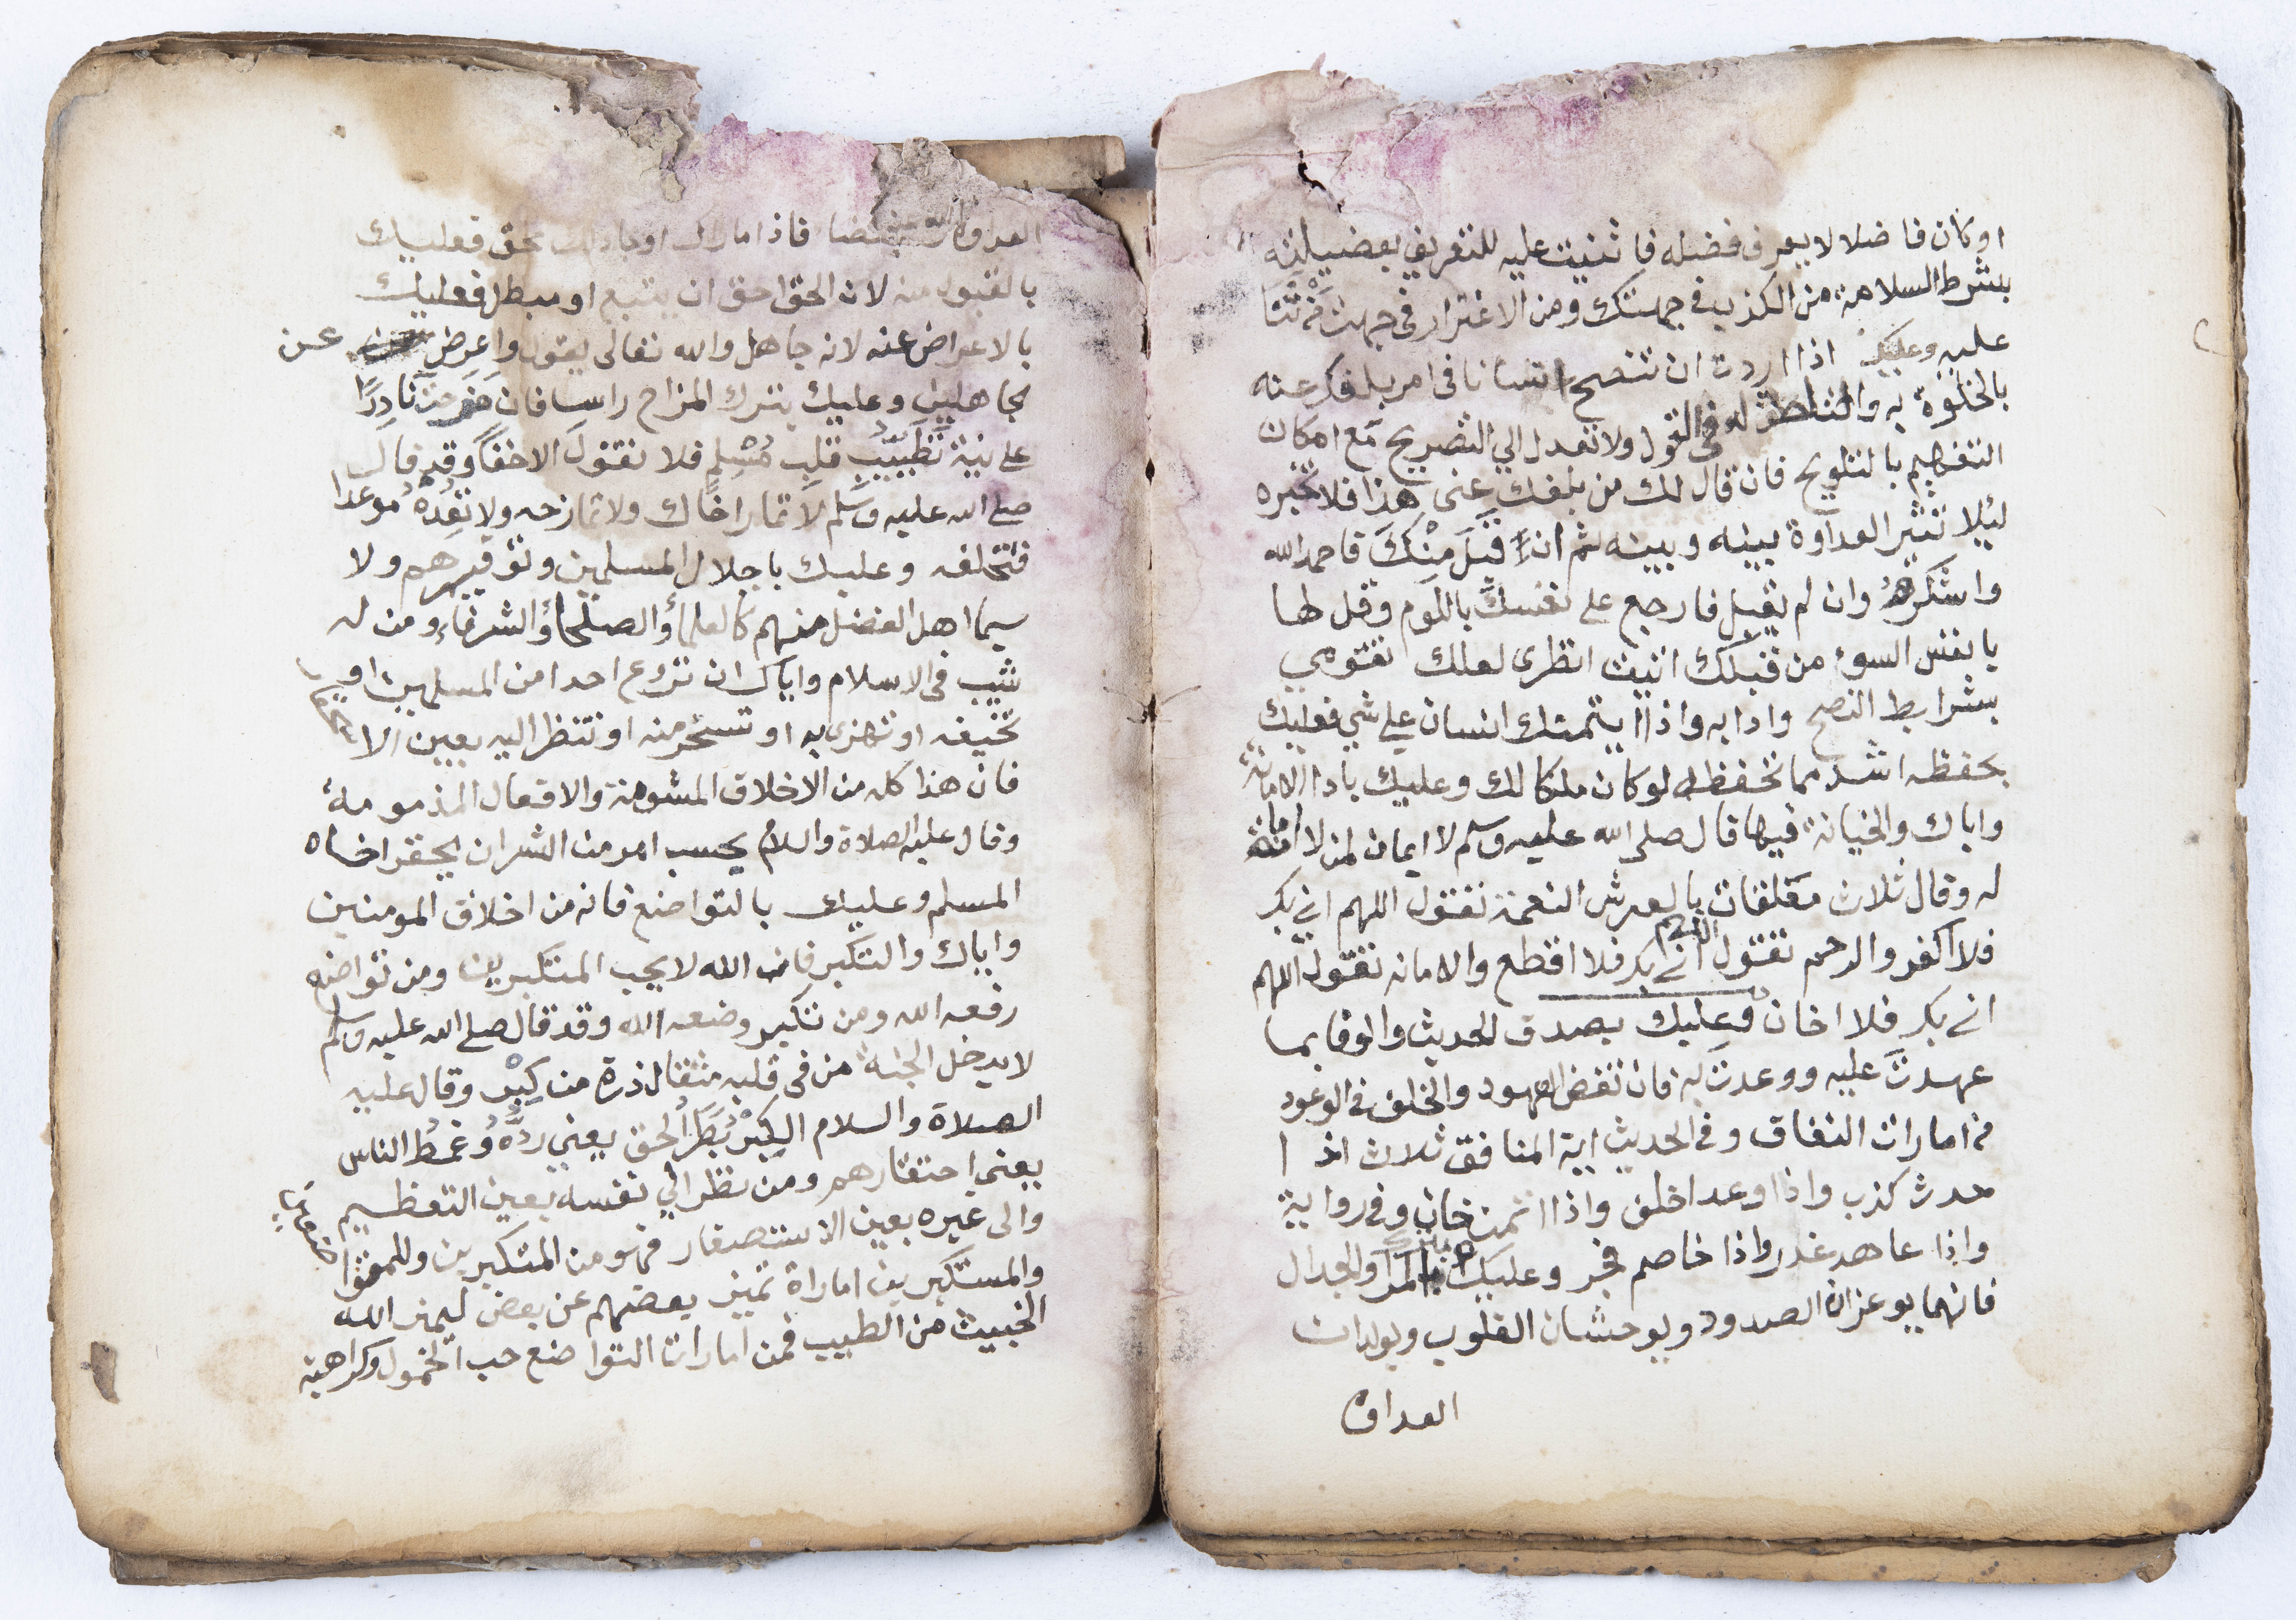 او كان فاضلا لا يعرف فضله فاثنيت عليه للتعريف بفضيلته
بشرط السلامة من الكذب في جهتك ومن الاغترار في جهت مَنْ تَثَنا
عليه وعليك اذا اردت ان تنصح انسانا في امر بلغك عنه
بالخلوة به والتلطف له في القول ولا تعدل الي التصريح مَع امكان
التفهيم بالتلويح فان قال لك من بلغك عني هذا فلا تخبره
ليُلا تثير العداوة بينه وبينه ثم ان قَبَلَ مِنْكَ فاحمد الله
واشكره وان لم يقبل فارجع على نفسك باللوم وقل لها
يا نفس السوء من قبلك اتيت انظرى لعلك تقومي
بشرايط النصح وادابه واذا ايتمنك انسان علي شي فعليك
بحفظه اشد مما تحفظه لو كان ملكا لك وعليك بادا الامانة
واياك والخيانة فيها قال صلى الله عليه وسلم لا ايمان لمن لا امانة
له وقال ثلاث معلقات بالعرش النعمة تقول اللهم اني بك
فلا اكفر والرحم تقول اللهم اني بك فلا اقطع والامانه تقول اللهم
اني بك فلا اخان وعليك بصدق الحديث والوفا بما
عهدتَ عليه ووعدتَ به فان نقض العهود والخلف في الوعود
من امارات النفاق وفي الحديث اية المنافق ثلاث اذا
حدث كذب واذا اوعد اخلف واذا اتمن خان وفي رواية
واذا عاهد غدر واذا خاصم فجر وعليك المرا والجدال
فانهما يوغران الصدور ويوحشان القلوب ويولدان
العداوة
العداوة فاذا ماراك او جادلك محق فعليك
بالقبول منه لان الحق احق ان يتبع او مبطل فعليك
بالاعراض عنه لانه جاهل والله تعالى يقول واعرض عن
الجاهلين وعليك بترك المزاح راسا فان مزحت نادِرًا
على نية تَطَيِّيب قلبِ مُسْلِمٍ فلا تقول الا حقا وقد قال
صلى الله عليه وسلم لا تمار اخاك ولا تمازحه ولا تعِدهُ موعدا
فتخلفه وعليك باجلال المسلمين وتوقيرهم ولا
سيما اهل الفضل منهم كالعلماء والصلحاء والشرفاء ومن له
شيب في الاسلام واياك ان تروع احدا من المسلمين او
تخيفه او تهزى به او تسخر منه او تنظر اليه بعين الاحتقار
فان هذا كله من الاخلاق المشومة والافعال المذمومة
وقال عليه الصلاة والسلام يحسب امر من الشر ان يحقر اخاه
المسلم وعليك بالتواضع فانه من اخلاق المومنين
واياك والتكبر فان الله لا يحب المتكبرين ومن تواضع
رفعه الله ومن تكبر وضعه الله وقد قال صلى الله عليه وسلم
لا يدخل الجنة من في قلبه مثقال ذرة من كِبْر وقال عليه
الصلاة والسلام الكِبْرُ بَطَرُ الحق يعني ردُّهُ وغمطُ الناس
يعني احتقارهم ومن نظر الي نفسه بعين التعظيم
والى غيره بعين الاستصغار فهو من المتكبرين وللمتواضعين
والمستكبرين اماراة تميز بعضهم عن بعض ليميز الله
الخبيث من الطيب فمن امارات التواضع حب الخمول وكراهية